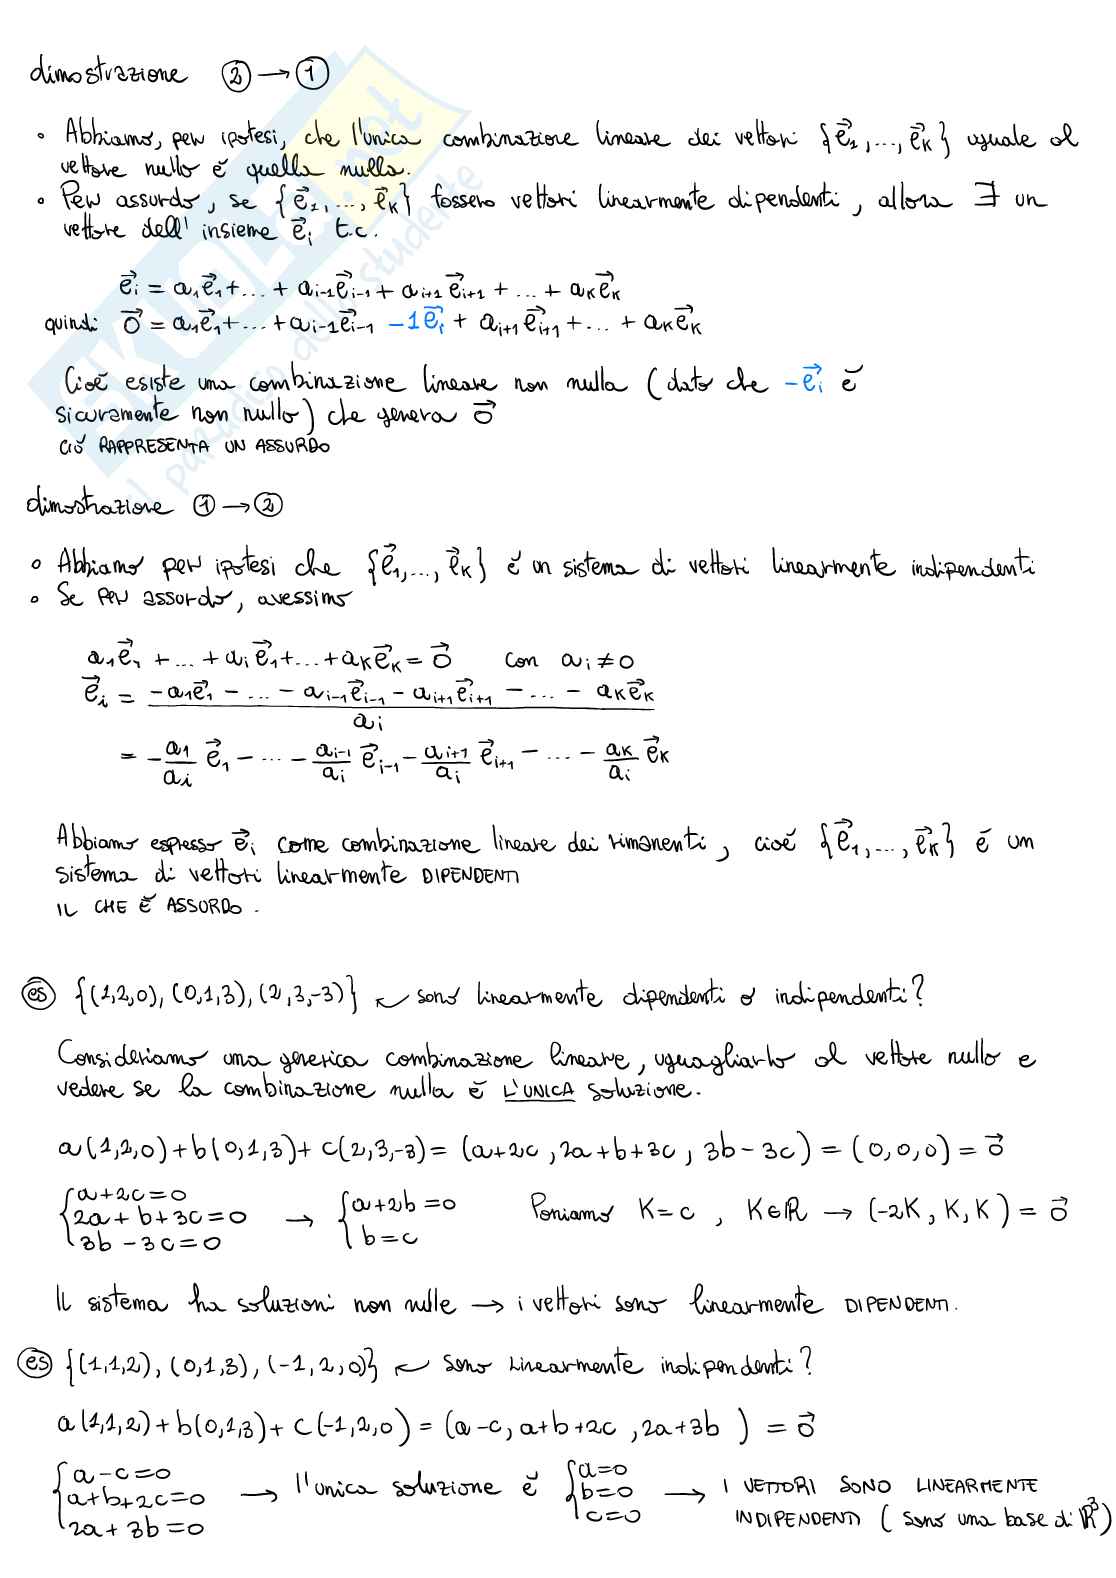 dimostrazione ② → ①
• Abbiamo, per ipotesi, che l'unica combinazione lineare dei vettori {e⃗₁,...,e⃗ₖ} uguale al
vettore nullo è quella nulla.
• Per assurdo, se {e⃗₁,...,e⃗ₖ} fossero vettori linearmente dipendenti, allora ∃ un
vettore dell'insieme e⃗ᵢ t.c.
e⃗ᵢ = a₁e⃗₁+...+ aᵢ₋₁e⃗ᵢ₋₁ + aᵢ₊₁e⃗ᵢ₊₁ + ... + aₖe⃗ₖ
quindi 0⃗ = a₁e⃗₁+...+aᵢ₋₁e⃗ᵢ₋₁ -1e⃗ᵢ + aᵢ₊₁e⃗ᵢ₊₁+...+ aₖe⃗ₖ
Cioè esiste una combinazione lineare non nulla (dato che -e⃗ᵢ è
sicuramente non nullo) che genera 0⃗
CIÒ RAPPRESENTA UN ASSURDO
dimostrazione ① → ②
• Abbiamo per ipotesi che {e⃗₁,...,e⃗ₖ} è un sistema di vettori linearmente indipendenti
• Se per assurdo, avessimo
a₁e⃗₁ + ... + aᵢe⃗₁+...+aₖe⃗ₖ = 0⃗ con aᵢ ≠ 0
e⃗ᵢ = (-a₁e⃗₁ - ... - aᵢ₋₁e⃗ᵢ₋₁ - aᵢ₊₁e⃗ᵢ₊₁ - ... - aₖe⃗ₖ) / aᵢ
= -a₁/aᵢ e⃗₁ - ... - aᵢ₋₁/aᵢ e⃗ᵢ₋₁ - aᵢ₊₁/aᵢ e⃗ᵢ₊₁ - ... - aₖ/aᵢ e⃗ₖ
Abbiamo espresso e⃗ᵢ come combinazione lineare dei rimanenti, cioè {e⃗₁,...,e⃗ₖ} è un
sistema di vettori linearmente DIPENDENTI
IL CHE È ASSURDO.
es {(1,2,0), (0,1,3), (2,3,-3)} ↜ sono linearmente dipendenti o indipendenti?
Consideriamo una generica combinazione lineare, uguagliarlo al vettore nullo e
vedere se la combinazione nulla è L'UNICA soluzione.
a(1,2,0)+b(0,1,3)+c(2,3,-3)= (a+2c, 2a+b+3c, 3b-3c) = (0,0,0) = 0⃗
{a+2c=0 {a+2b=0 Poniamo K=c, K∈ℝ → (-2K, K, K) = 0⃗
2a+b+3c=0 → b=c
3b-3c=0
Il sistema ha soluzioni non nulle → i vettori sono linearmente DIPENDENTI.
es {(1,1,2), (0,1,3), (-1,2,0)} ↜ sono linearmente indipendenti?
a(1,1,2)+b(0,1,3)+c(-1,2,0) = (a-c, a+b+2c, 2a+3b) = 0⃗
{a-c=0 {a=0
a+b+2c=0 → l'unica soluzione è b=0 → I VETTORI SONO LINEARMENTE
2a+3b=0 c=0 INDIPENDENTI (sono una base di ℝ³)
SKUOLA.net
il paradiso dello studente